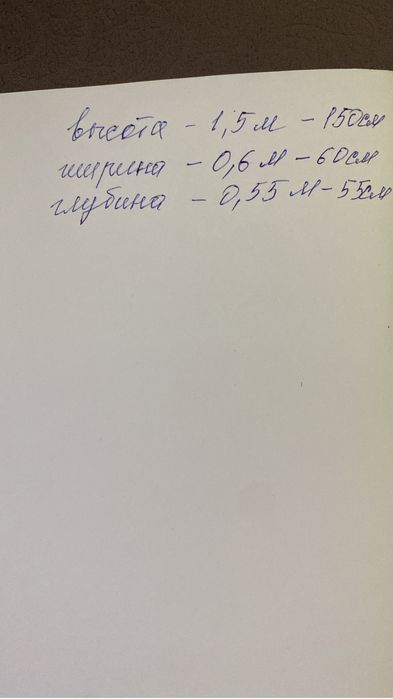 высота - 1,5 м - 150см
ширина - 0,6 м - 60см
глубина - 0,55 м - 55см